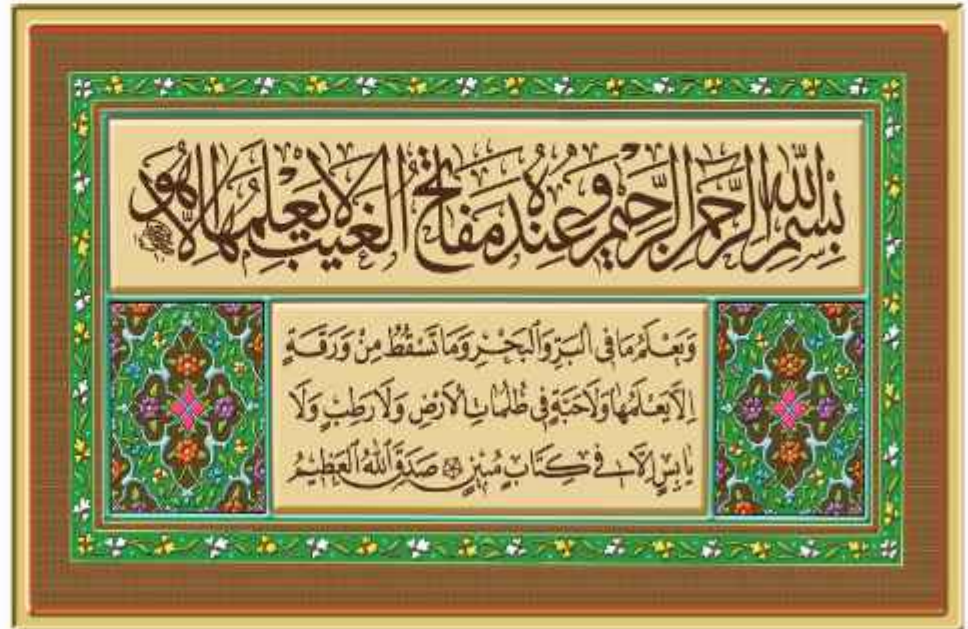 بِسْمِ اللّٰهِ الرَّحْمٰنِ الرَّحِيمِ وَعِنْدَهُ مَفَاتِحُ الْغَيْبِ لَا يَعْلَمُهَا إِلَّا هُوَ
وَيَعْلَمُ مَا فِي الْبَرِّ وَالْبَحْرِ وَمَا تَسْقُطُ مِنْ وَرَقَةٍ
اِلَّا يَعْلَمُهَا وَلَا حَبَّةٍ فِي ظُلُمَاتِ الْاَرْضِ وَلَا رَطْبٍ وَلَا
يَابِسٍ اِلَّا فِي كِتَابٍ مُبِينٍ صَدَقَ اللّٰهُ الْعَظِيمُ